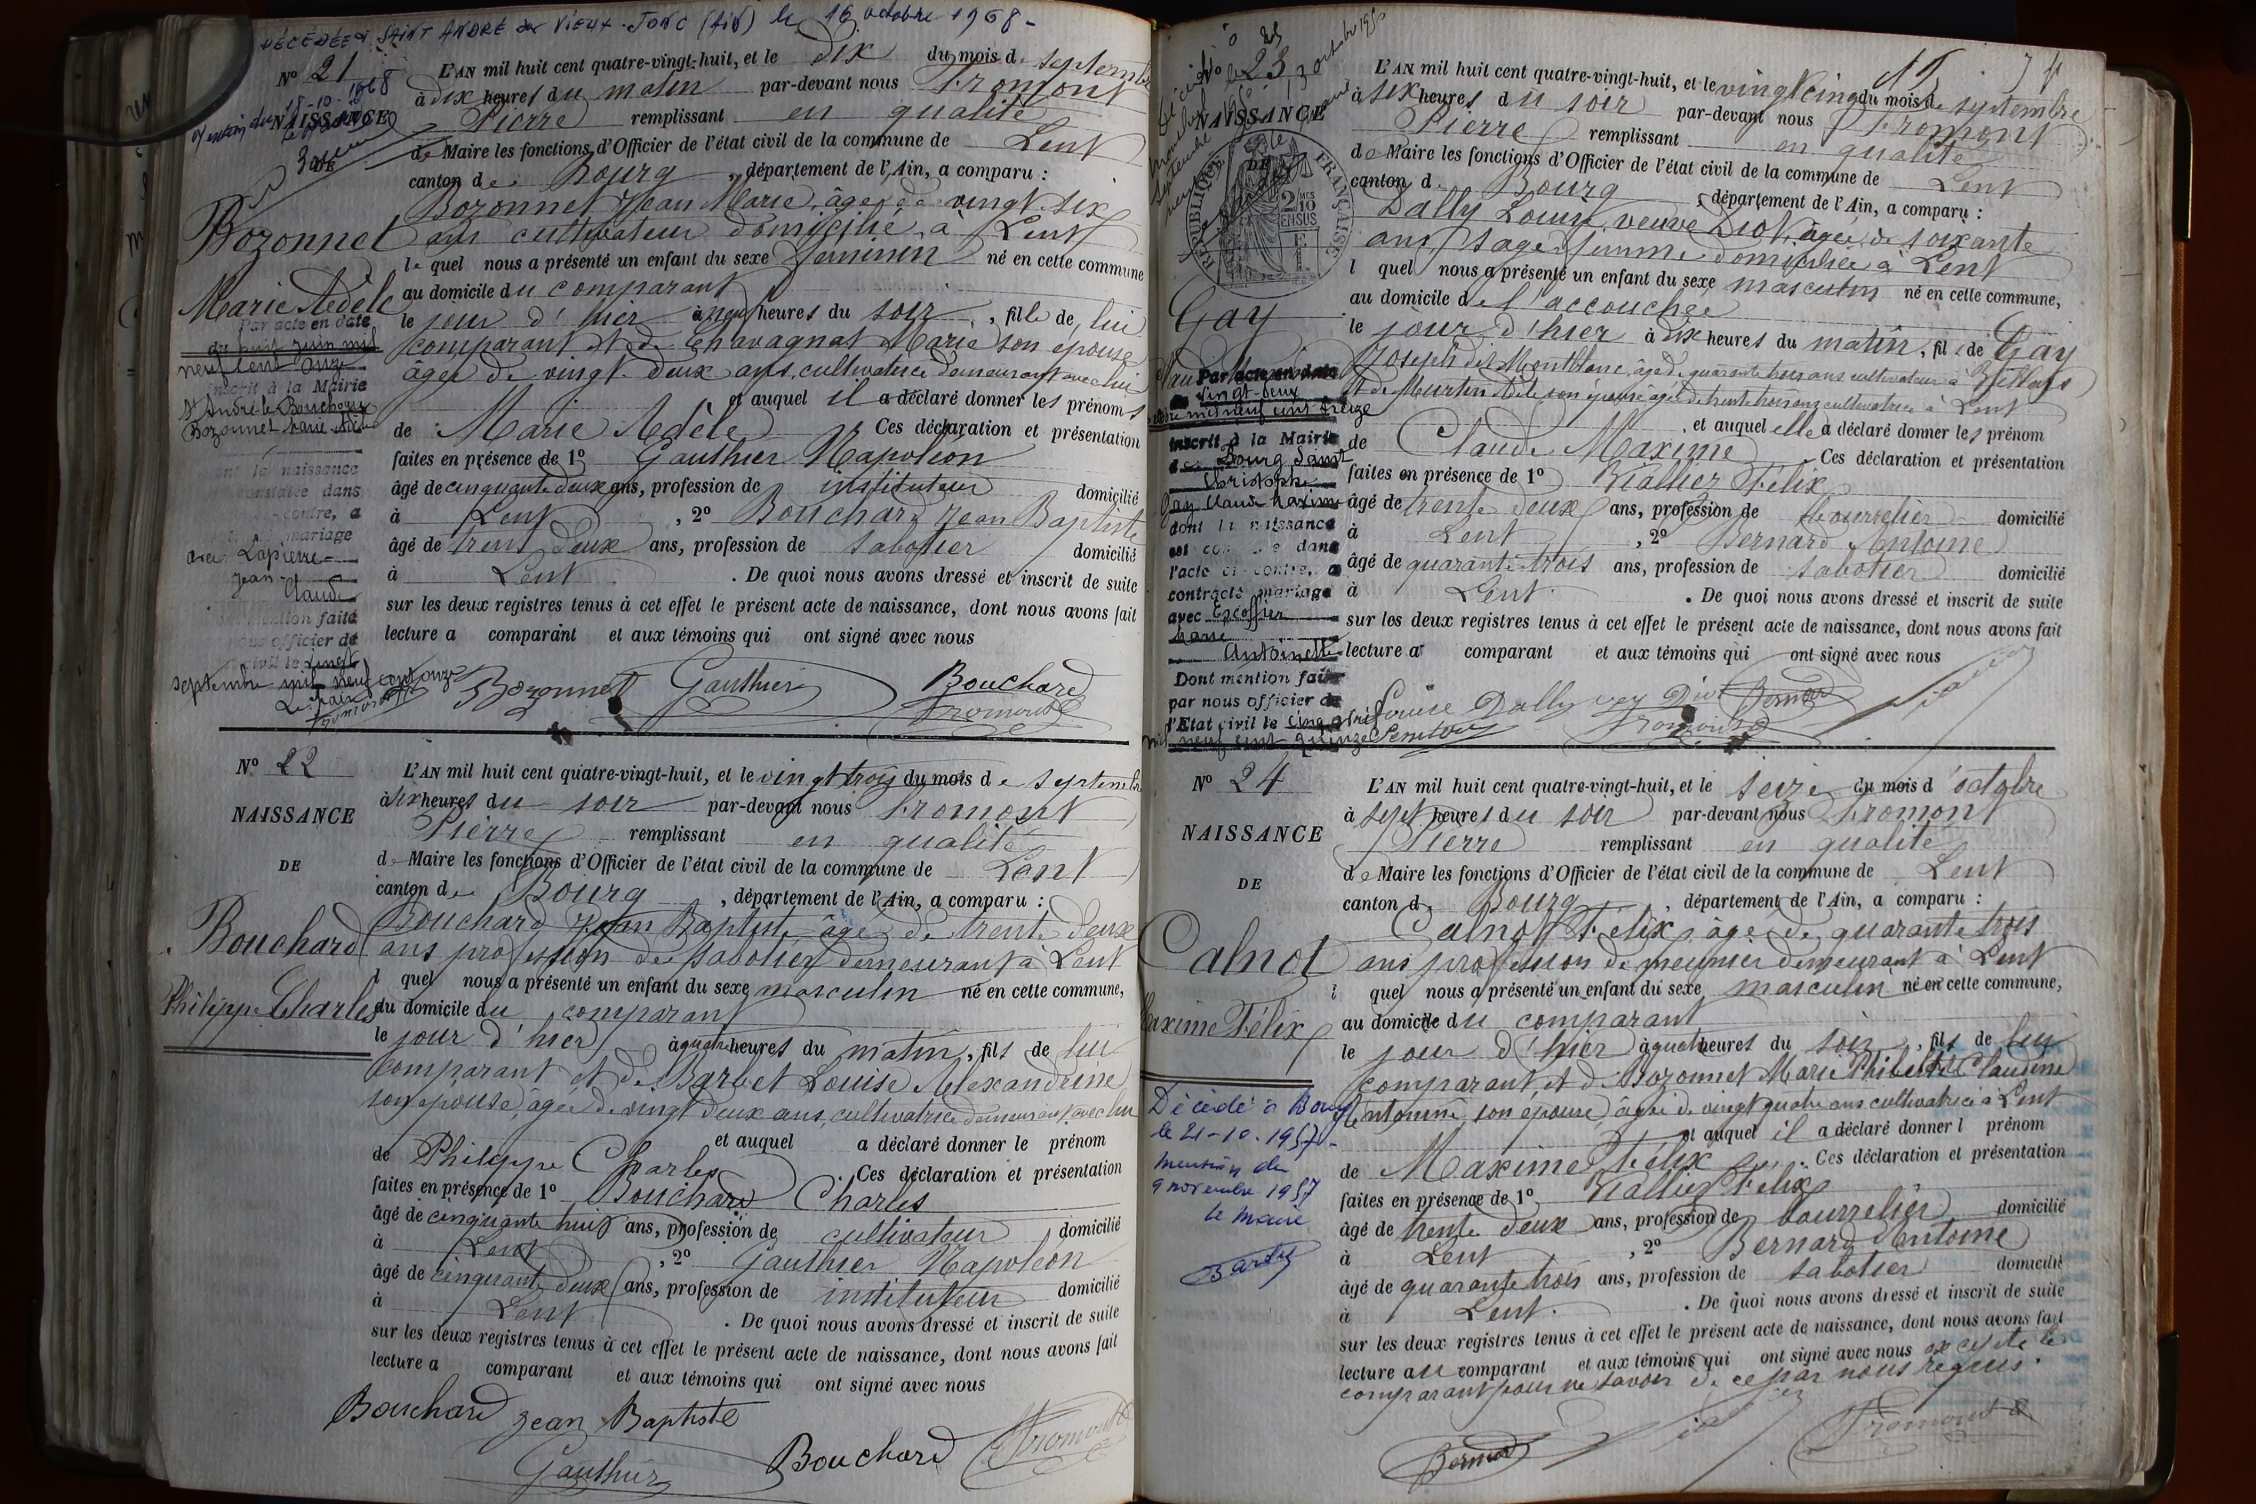 DÉCÉDÉE à SAINT ANDRÉ sur VIEUX-JONC (AIN) le 16 octobre 1968 -
N° 21
18-10-1968
NAISSANCE
DE
Bozonnet
Marie Adèle
Par acte en date
du huit juin mil
neuf cent onze
inscrit à la Mairie
St André le Bouchoux
Bozonnet Marie Adèle
dont la naissance
constatée dans
contre, a
mariage
avec Lapierre
Jean
Claude
mention faite
nous officier de
civil le vingt
septembre mil neuf cent onze
L'AN mil huit cent quatre-vingt-huit, et le dix du mois de septembre
à dix heures du matin par-devant nous Fromont
Pierre remplissant en qualité
de Maire les fonctions d'Officier de l'état civil de la commune de Lent
canton de Bourg, département de l'Ain, a comparu :
Bozonnet Jean Marie, âgé de vingt-six
ans cultivateur domicilié à Lent
lequel nous a présenté un enfant du sexe féminin né en cette commune
au domicile du comparant
le jour d'hier à neuf heures du soir, fille de lui
comparant et de Chavagnat Marie son épouse
âgée de vingt-deux ans, cultivatrice demeurant avec lui
et auquel il a déclaré donner les prénoms
de Marie Adèle Ces déclaration et présentation
faites en présence de 1° Gauthier Napoléon
âgé de cinquante deux ans, profession de instituteur domicilié
à Lent, 2° Bouchard Jean Baptiste
âgé de trente deux ans, profession de sabotier domicilié
à Lent. De quoi nous avons dressé et inscrit de suite
sur les deux registres tenus à cet effet le présent acte de naissance, dont nous avons fait
lecture a comparant et aux témoins qui ont signé avec nous
Bozonnet Gauthier Bouchard
Fromont
N° 22
NAISSANCE
DE
Bouchard
Philippe Charles
L'AN mil huit cent quatre-vingt-huit, et le vingt trois du mois de septembre
à six heures du soir par-devant nous Fromont
Pierre remplissant en qualité
de Maire les fonctions d'Officier de l'état civil de la commune de Lent
canton de Bourg, département de l'Ain, a comparu :
Bouchard Jean Baptiste âgé de trente deux
ans profession de sabotier demeurant à Lent
l quel nous a présenté un enfant du sexe masculin né en cette commune,
au domicile du comparant
le jour d'hier à quatre heures du matin, fils de lui
comparant et de Barbet Louise Alexandrine
son épouse, âgée de vingt deux ans, cultivatrice demeurant avec lui
et auquel a déclaré donner le prénom
de Philippe Charles. Ces déclaration et présentation
faites en présence de 1° Bouchard Charles
âgé de cinquante huit ans, profession de cultivateur domicilié
à Lent, 2° Gauthier Napoléon
âgé de cinquante deux ans, profession de instituteur domicilié
à Lent. De quoi nous avons dressé et inscrit de suite
sur les deux registres tenus à cet effet le présent acte de naissance, dont nous avons fait
lecture a comparant et aux témoins qui ont signé avec nous
Bouchard Jean Baptiste
Gauthier Bouchard Fromont
N° 23
NAISSANCE
DE
RÉPUBLIQUE FRANÇAISE
2 MES 10
EN SUS
Gay
Par acte en date
vingt-deux
mil neuf cent treize
inscrit à la Mairie
de Bourg Saint
Christophe
Gay Claude Maxime
dont la naissance
est constatée dans
l'acte ci-contre, a
contracté mariage
avec Escoffier
Marie
Antoinette
Dont mention faite
par nous officier de
l'Etat civil le cinq avril
mil neuf cent quinze
L'AN mil huit cent quatre-vingt-huit, et le vingt cinq du mois de septembre
à six heures du soir par-devant nous Fromont
Pierre remplissant en qualité
de Maire les fonctions d'Officier de l'état civil de la commune de Lent
canton d Bourg, département de l'Ain, a comparu :
Dally Louise, veuve Diot, âgée de soixante
ans sage femme domiciliée à Lent
l quel nous a présenté un enfant du sexe masculin né en cette commune,
au domicile de l'accouchée
le jour d'hier à dix heures du matin, fils de Gay
Joseph dit Montblanc, âgé de quarante trois ans cultivateur à
et de Meurtin Adèle son épouse âgée de trente trois ans cultivatrice à Lent
et auquel elle a déclaré donner les prénom
de Claude Maxime. Ces déclaration et présentation
faites en présence de 1° Viallier Félix
âgé de trente deux ans, profession de bourrelier domicilié
à Lent, 2° Bernard Antoine
âgé de quarante trois ans, profession de sabotier domicilié
à Lent. De quoi nous avons dressé et inscrit de suite
sur les deux registres tenus à cet effet le présent acte de naissance, dont nous avons fait
lecture a comparant et aux témoins qui ont signé avec nous
Louise Dally Diot Bernard
Fromont
N° 24
NAISSANCE
DE
Calnot
Maxime Félix
Décédé à Bourg
le 21-10-1957 -
Mention du
9 novembre 1957
Le Maire
L'AN mil huit cent quatre-vingt-huit, et le seize du mois d'octobre
à sept heures du soir par-devant nous Fromont
Pierre remplissant en qualité
de Maire les fonctions d'Officier de l'état civil de la commune de Lent
canton d Bourg, département de l'Ain, a comparu :
Calnot Félix, âgé de quarante trois
ans profession de meunier demeurant à Lent
l quel nous a présenté un enfant du sexe masculin né en cette commune,
au domicile du comparant
le jour d'hier à quatre heures du soir, fils de lui
comparant et de Bozonnet Marie Philiberte Claudine
Antonine son épouse, âgée de vingt quatre ans cultivatrice à Lent
et auquel il a déclaré donner l prénom
de Maxime Félix. Ces déclaration et présentation
faites en présence de 1° Viallier Félix
âgé de trente deux ans, profession de bourrelier domicilié
à Lent, 2° Bernard Antoine
âgé de quarante trois ans, profession de sabotier domicilié
à Lent. De quoi nous avons dressé et inscrit de suite
sur les deux registres tenus à cet effet le présent acte de naissance, dont nous avons fait
lecture au comparant et aux témoins qui ont signé avec nous excepté le
comparant pour ne savoir de ce par nous requis.
Bernard Fromont